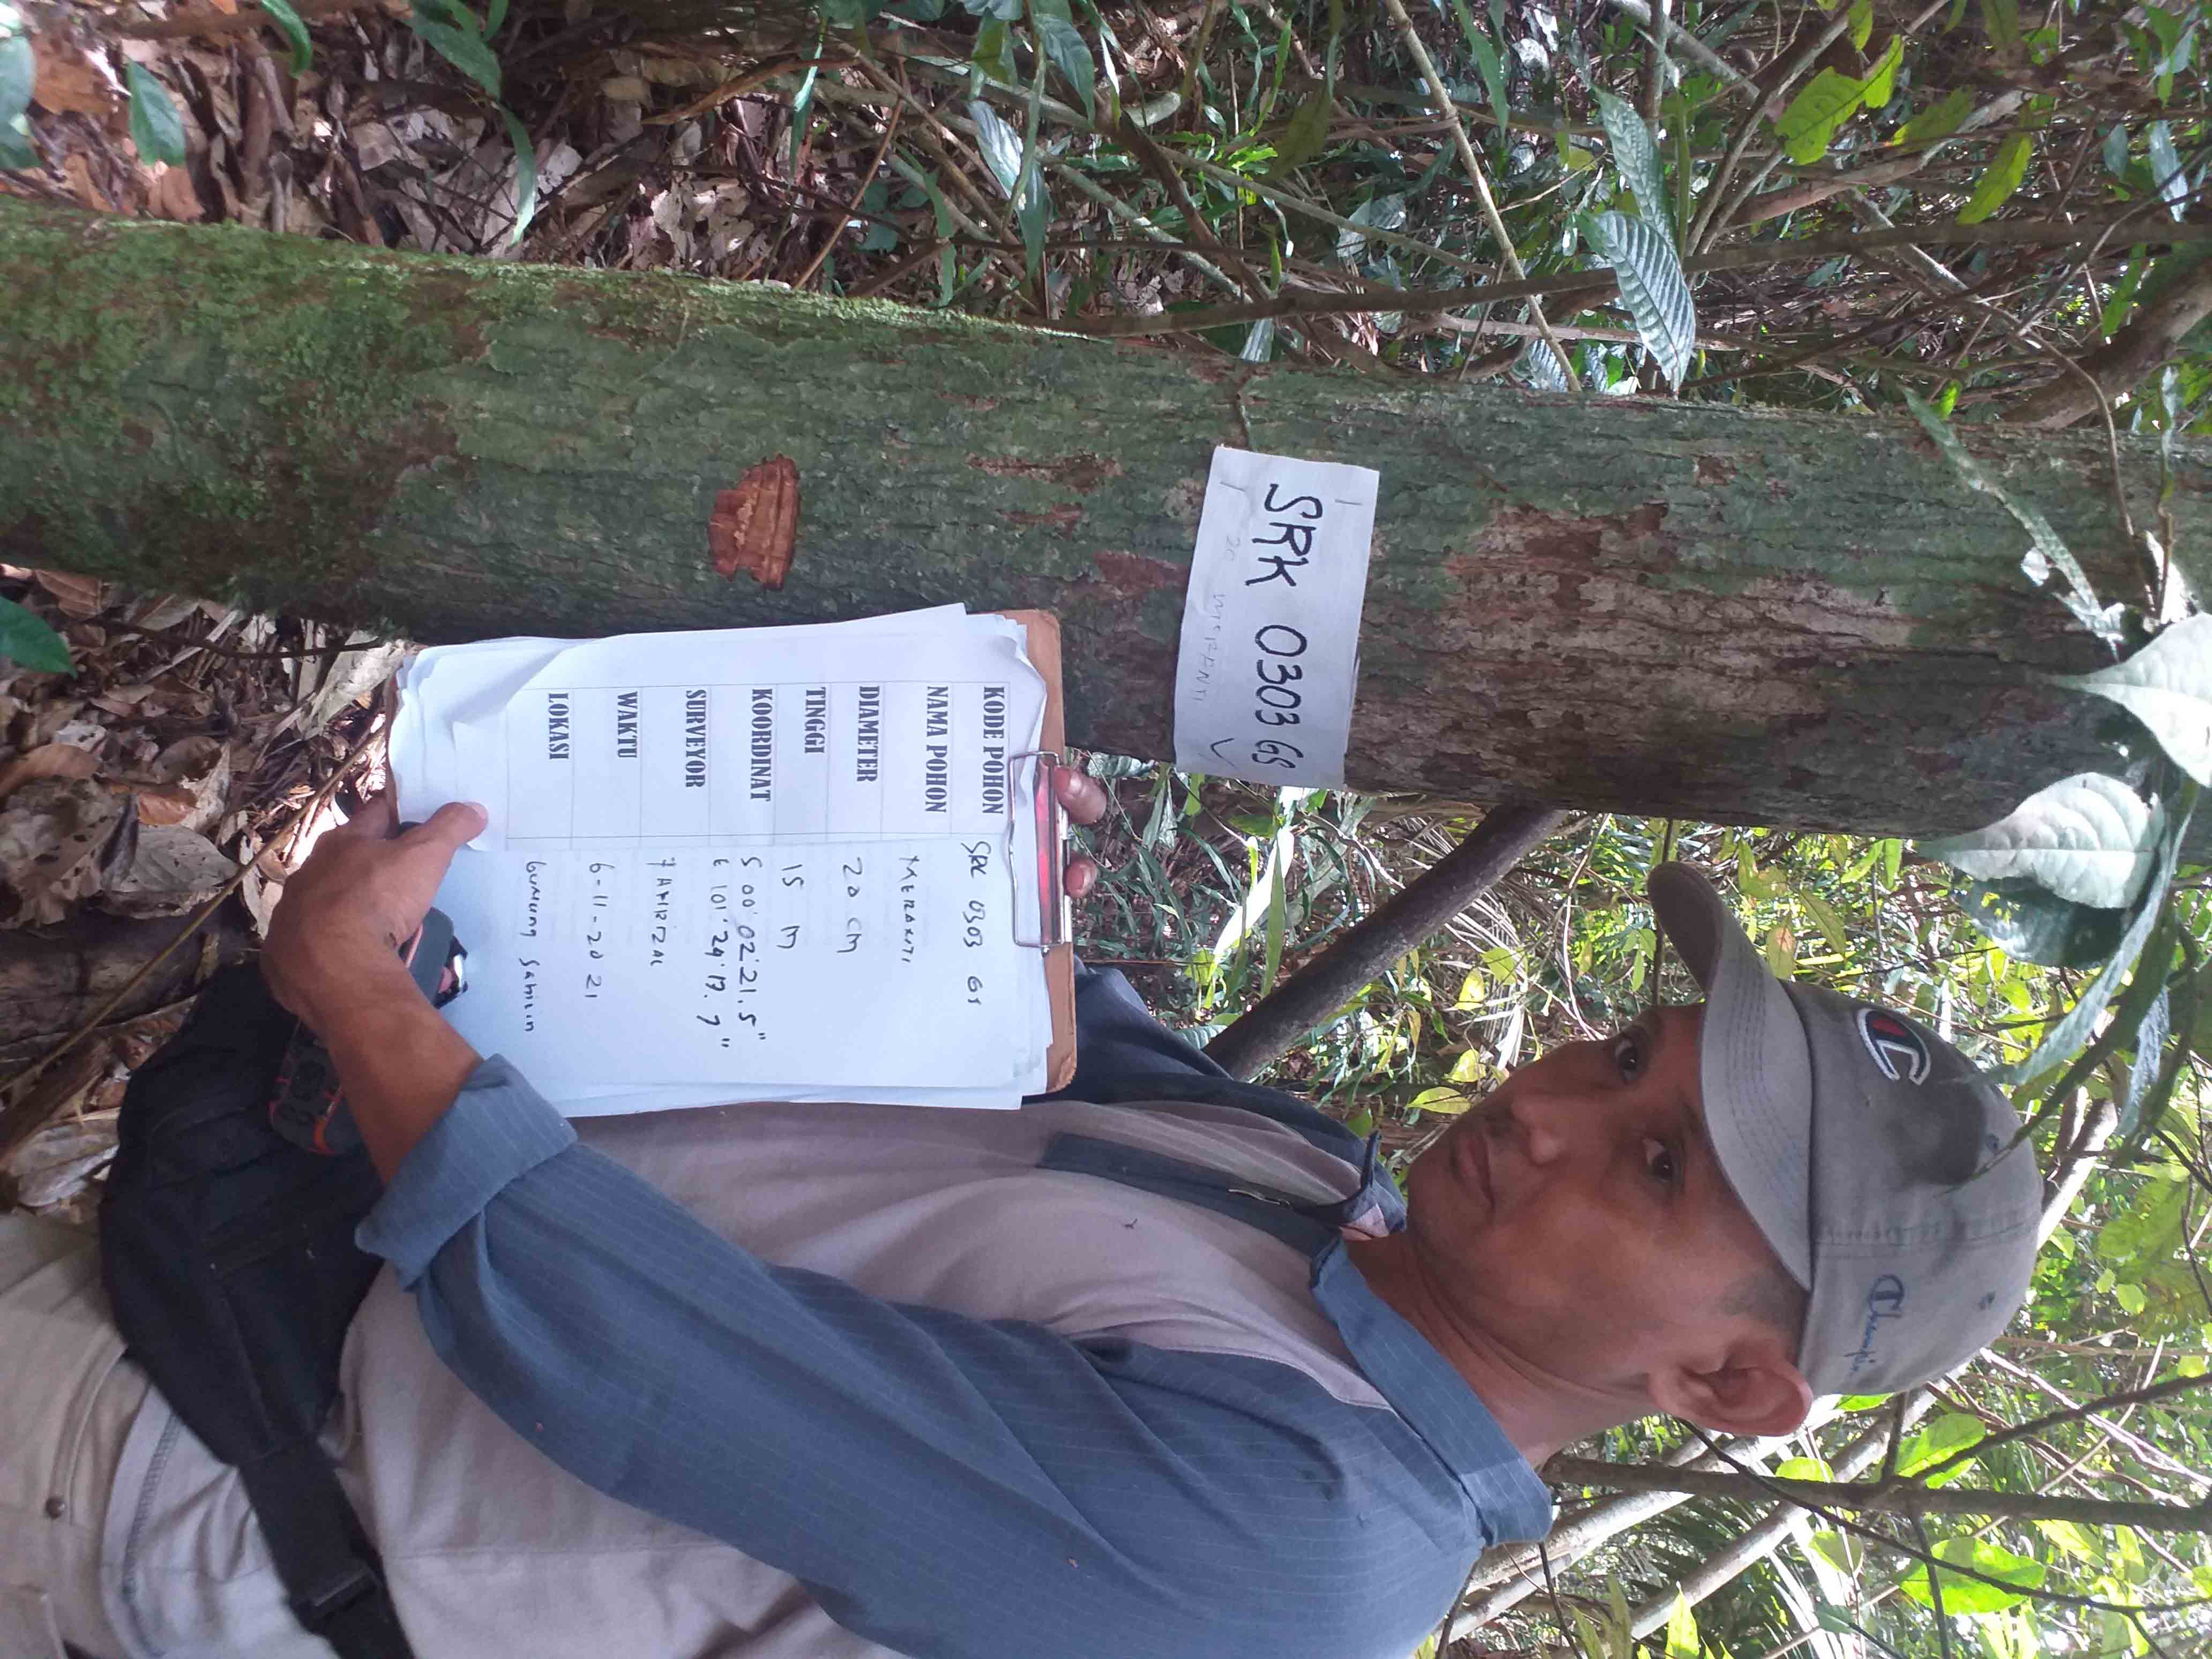 SRK 0303 GS
20 MERANTI
KODE POHON SRK 0303 GS
NAMA POHON MERANTI
DIAMETER 20 cm
TINGGI 15 m
KOORDINAT S 00° 02' 21.5"
E 101° 24' 17.7"
SURVEYOR
WAKTU 6-11-2021
LOKASI GUNUNG SAHILIN
C
Champion